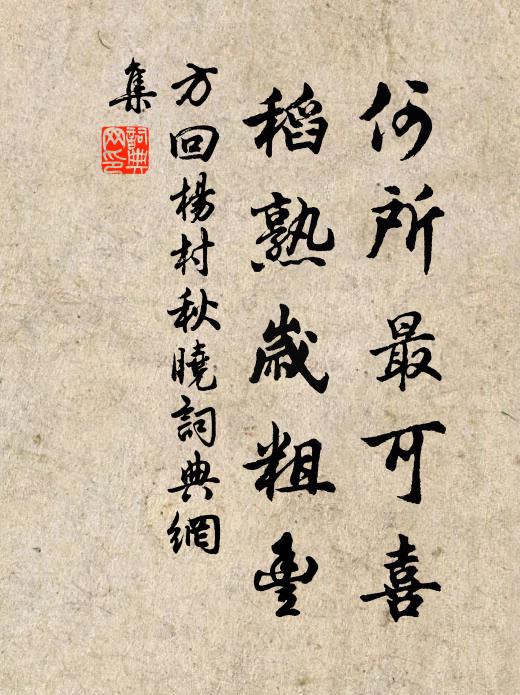 何所最可喜
稻熟歲粗豐
方回楊村秋曉詞典網
集
詞典網印